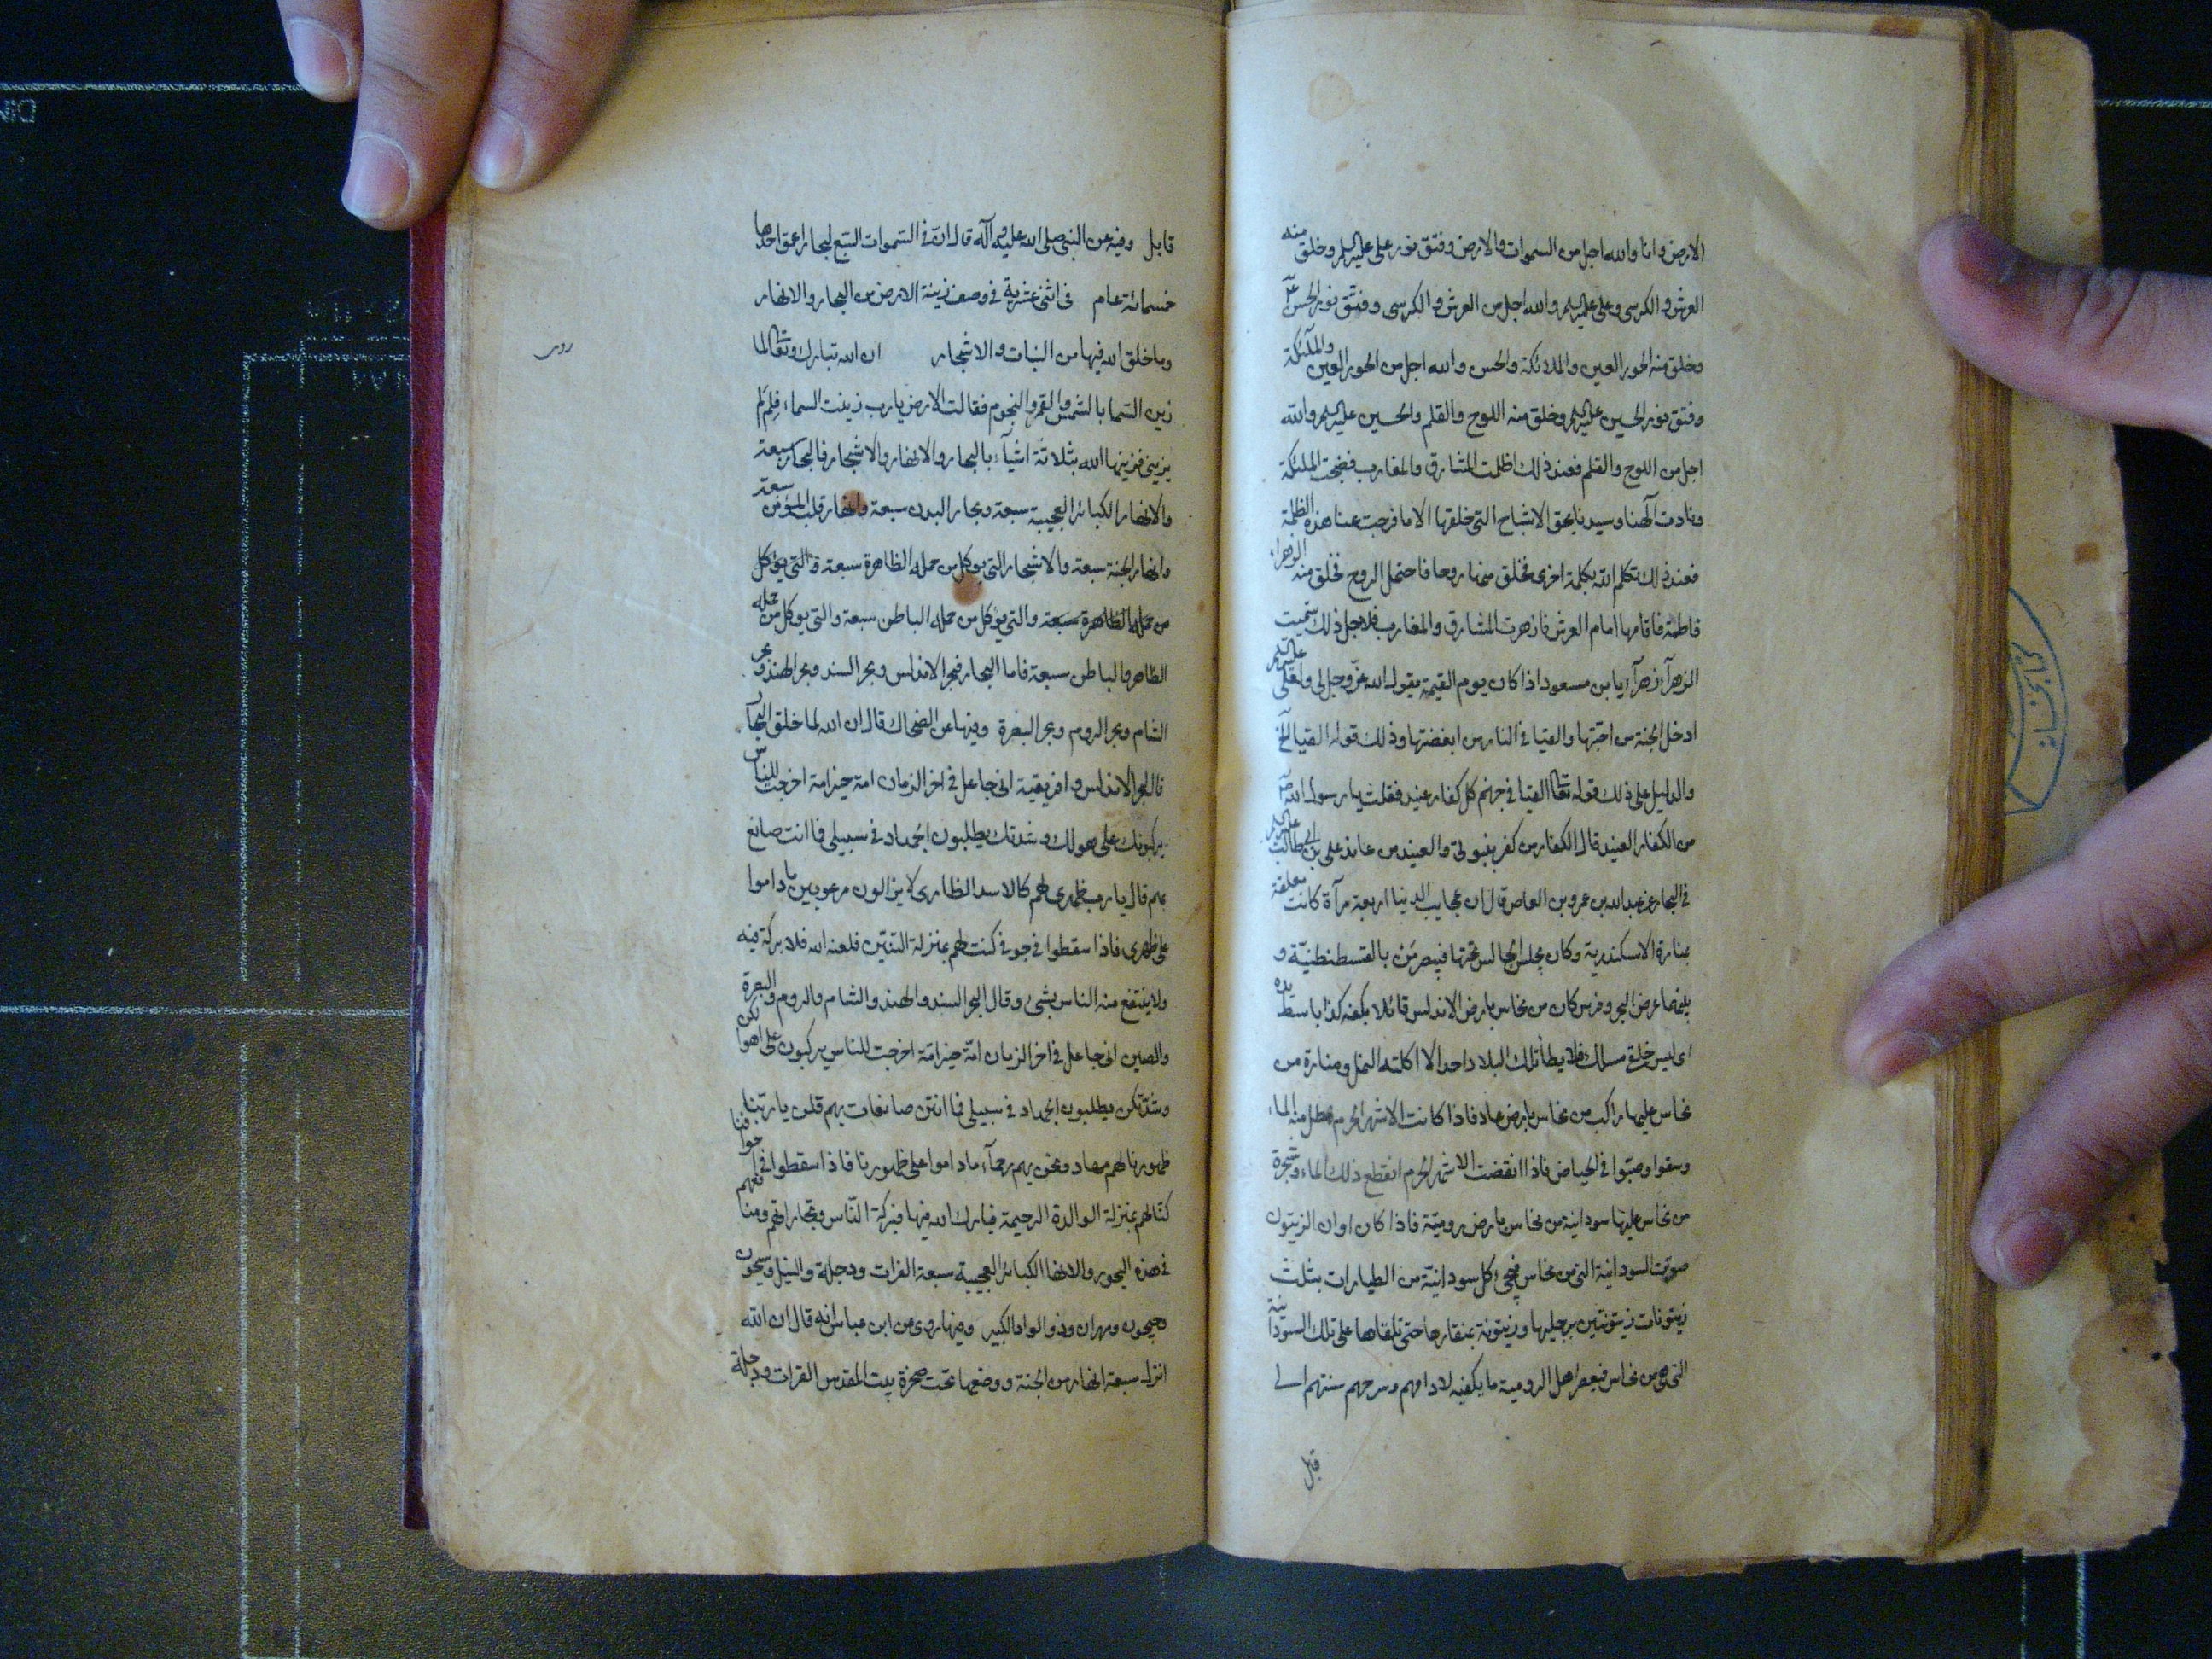 الارض وانا والله اجل من السموات والارض وفتق نور علی علیه السلم وخلق منه
العرش والکرسی وعلی علیه السلم والله اجل من العرش والکرسی وفتق نور الحسن
وخلق منه الحور العین والملائکة والحسن والله اجل من الحور العین والملآئکة
وفتق نور الحسین علیه السلم وخلق منه اللوح والقلم والحسین علیه السلم والله
اجل من اللوح والقلم فعند ذلك اظلمت المشارق والمغارب فضجت الملئکة
ونادت آلهنا وسیدنا بحق الاشباح التی خلقتها الا ما فرجت عنا هذه الظلمة
فعند ذلك تکلم الله بکلمة اخری فخلق منها روحا فاحتمل الروح فخلق منه الزهراء
فاطمة فاقامها امام العرش فازهرت المشارق والمغارب فلاجل ذلك سمیت
الزهرآء زهرآء یابن مسعود اذا کان یوم القیمة یقول الله عزّ وجل لی ولعلی علیه السلم
ادخل الجنة من احبتها والقیا فی النار من ابغضتها وذلك قوله القیا الخ
والدلیل علی ذلك قوله تعالی القیا فی جهنم کل کفار عنید فقلت یا رسول الله ص
من الکفار العنید قال الکفار من کفر بنبوتی والعنید من عاند علی بن ابی طالب علیه السلم
فی البحار عن عبدالله بن عمرو بن العاص قال ان عجایب الدنیا اربعة مرآة کانت معلقة
بمنارة الاسکندریة وکان یجلس الجالس تحتها فیبصر من بالقسطنطنیّة و
بینهما عرض البحر وفرس کان من نحاس بارض الاندلس قائلا بکفه کذا باسط یده
ای لیس خلفی مسلك فلا یطأ تلك البلاد احد الا اکلته النمل ومنارة من
نحاس علیها راکب من نحاس بارض عاد فاذا کانت الاشهر الحرم هطل منه الماء
وسقوا وصبّوا فی الحیاض فاذا انقضت الاشهر الحرم انقطع ذلك الماء وشجرة
من نحاس علیها سودانیة من نحاس بارض رومیّة فاذا کان اوان الزیتون
صوتت السودانیة التی من نحاس فیجیء کل سودانیّة من الطیارات بثلث
زیتونات زیتونتین برجلیها وزیتونة بمنقارها حتی تلقاها علی تلك السودانیة
التی هی من نحاس فیعصر اهل الرومیة ما یکفیه لادامهم وسرجهم سنتهم الی
قابل
قابل وفیه عن النبی صلی الله علیه وآله قال ان فی السموات السبع لبحارا عمق احدها
خمسمائة عام فی اثنی عشریة فی وصف زینة الارض من البحار والانهار
وما خلق الله فیها من النبات والاشجار ان الله تبارك وتعالی لما
زین السما بالشمس والقمر والنجوم فقالت الارض یا رب زینت السماء فلم لم
یزینی فزینها الله بثلاثة اشیآء بالبحار والانهار والاشجار فالبحار سبعة
والانهار الکبائر العجیبة سبعة وبحار البدن سبعة وانهار قلب المؤمن سبعة
وانهار الجنة سبعة والاشجار التی یوکل من حمله الظاهرة سبعة والتی یوکل
من حمله الظاهرة سبعة والتی یوکل من حمله الباطن سبعة والتی یوکل من حمله
الظاهر والباطن سبعة فاما البحار فبحر الاندلس وبحر السند وبحر الهند وبحر
الشام وبحر الروم وبحر البصرة وفیها عن الضحاك قال ان الله لما خلق البحار
قال لبحر الاندلس وافریقیة انی جاعل فی اخر الزمان امة خیر امة اخرجت للناس
یرکبونك علی هولك وشدتك یطلبون الجهاد فی سبیلی فما انت صانع
بهم قال یا رب ظهری لهم کالاسد الظاری لا یزالون مرعوبین ما داموا
علی ظهری فاذا سقطوا فی جوفی کنت لهم بمنزلة التنّین فلعنه الله فلا برکة فیه
ولا ینتفع منه الناس بشیء وقال لبحر السند والهند والشام والروم والبصرة
والصین انی جاعل فی اخر الزمان امّة خیر امّة اخرجت للناس یرکبون علی اهوالکن
وشدّتکن یطلبون الجهاد فی سبیلی فما انتن صانعات بهم قلن یا ربّنا
ظهورنا لهم مهاد ونحن بهم رحمآء ما داموا علی ظهورنا فاذا سقطوا فی اجوافنا
کنّا لهم بمنزلة الوالدة الرحیمة فبارك الله فیها فبرکة النّاس وتجاراتهم ومنافعهم
فی هذه البحور والانهار الکبائر العجیبة سبعة الفرات ودجلة والنیل وسیحون
وجیحون ومهران وذو الواد الکبیر وفیها روی عن ابن عباس انه قال ان الله
انزل سبعة انهار من الجنة ووضعها تحت صخرة بیت المقدس الفرات ودجلة